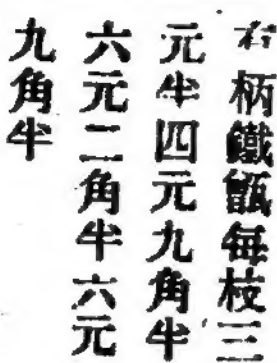 右柄鐵瓿每枝三
元半四元九角半
六元二角半六元
九角半